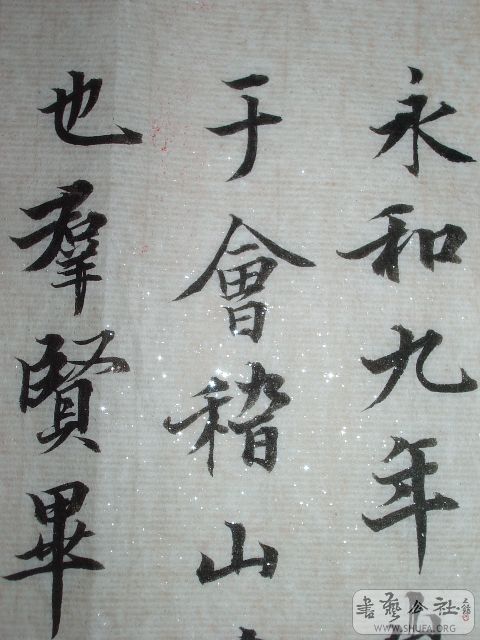 永和九年
于會稽山
也羣賢畢
書藝公社
WWW.SHUFA.ORG